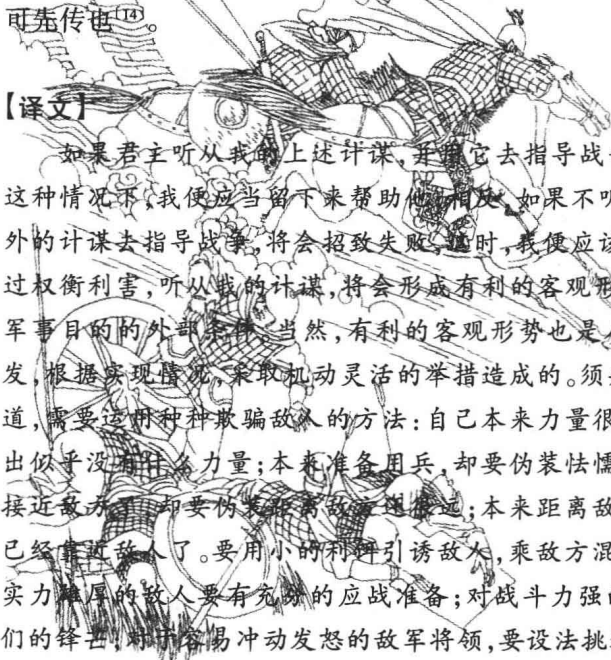 可先传也[14]。
【译文】
如果君主听从我的上述计谋,并用它去指导战
这种情况下,我便应当留下来帮助他;相反,如果不
外的计谋去指导战争,将会招致失败,这时,我便应该
过权衡利害,听从我的计谋,将会形成有利的客观形
军事目的的外部条件。当然,有利的客观形势也是
发,根据实现情况,采取机动灵活的举措造成的。须
道,需要运用种种欺骗敌人的方法:自己本来力量很
出似乎没有什么力量;本来准备用兵,却要伪装怯懦
接近敌方了,却要伪装距离敌方还很远;本来距离敌
已经靠近敌人了。要用小的利饵引诱敌人,乘敌方混
实力雄厚的敌人要有充分的应战准备;对战斗力强
们的锋芒;对于容易冲动发怒的敌军将领,要设法挑